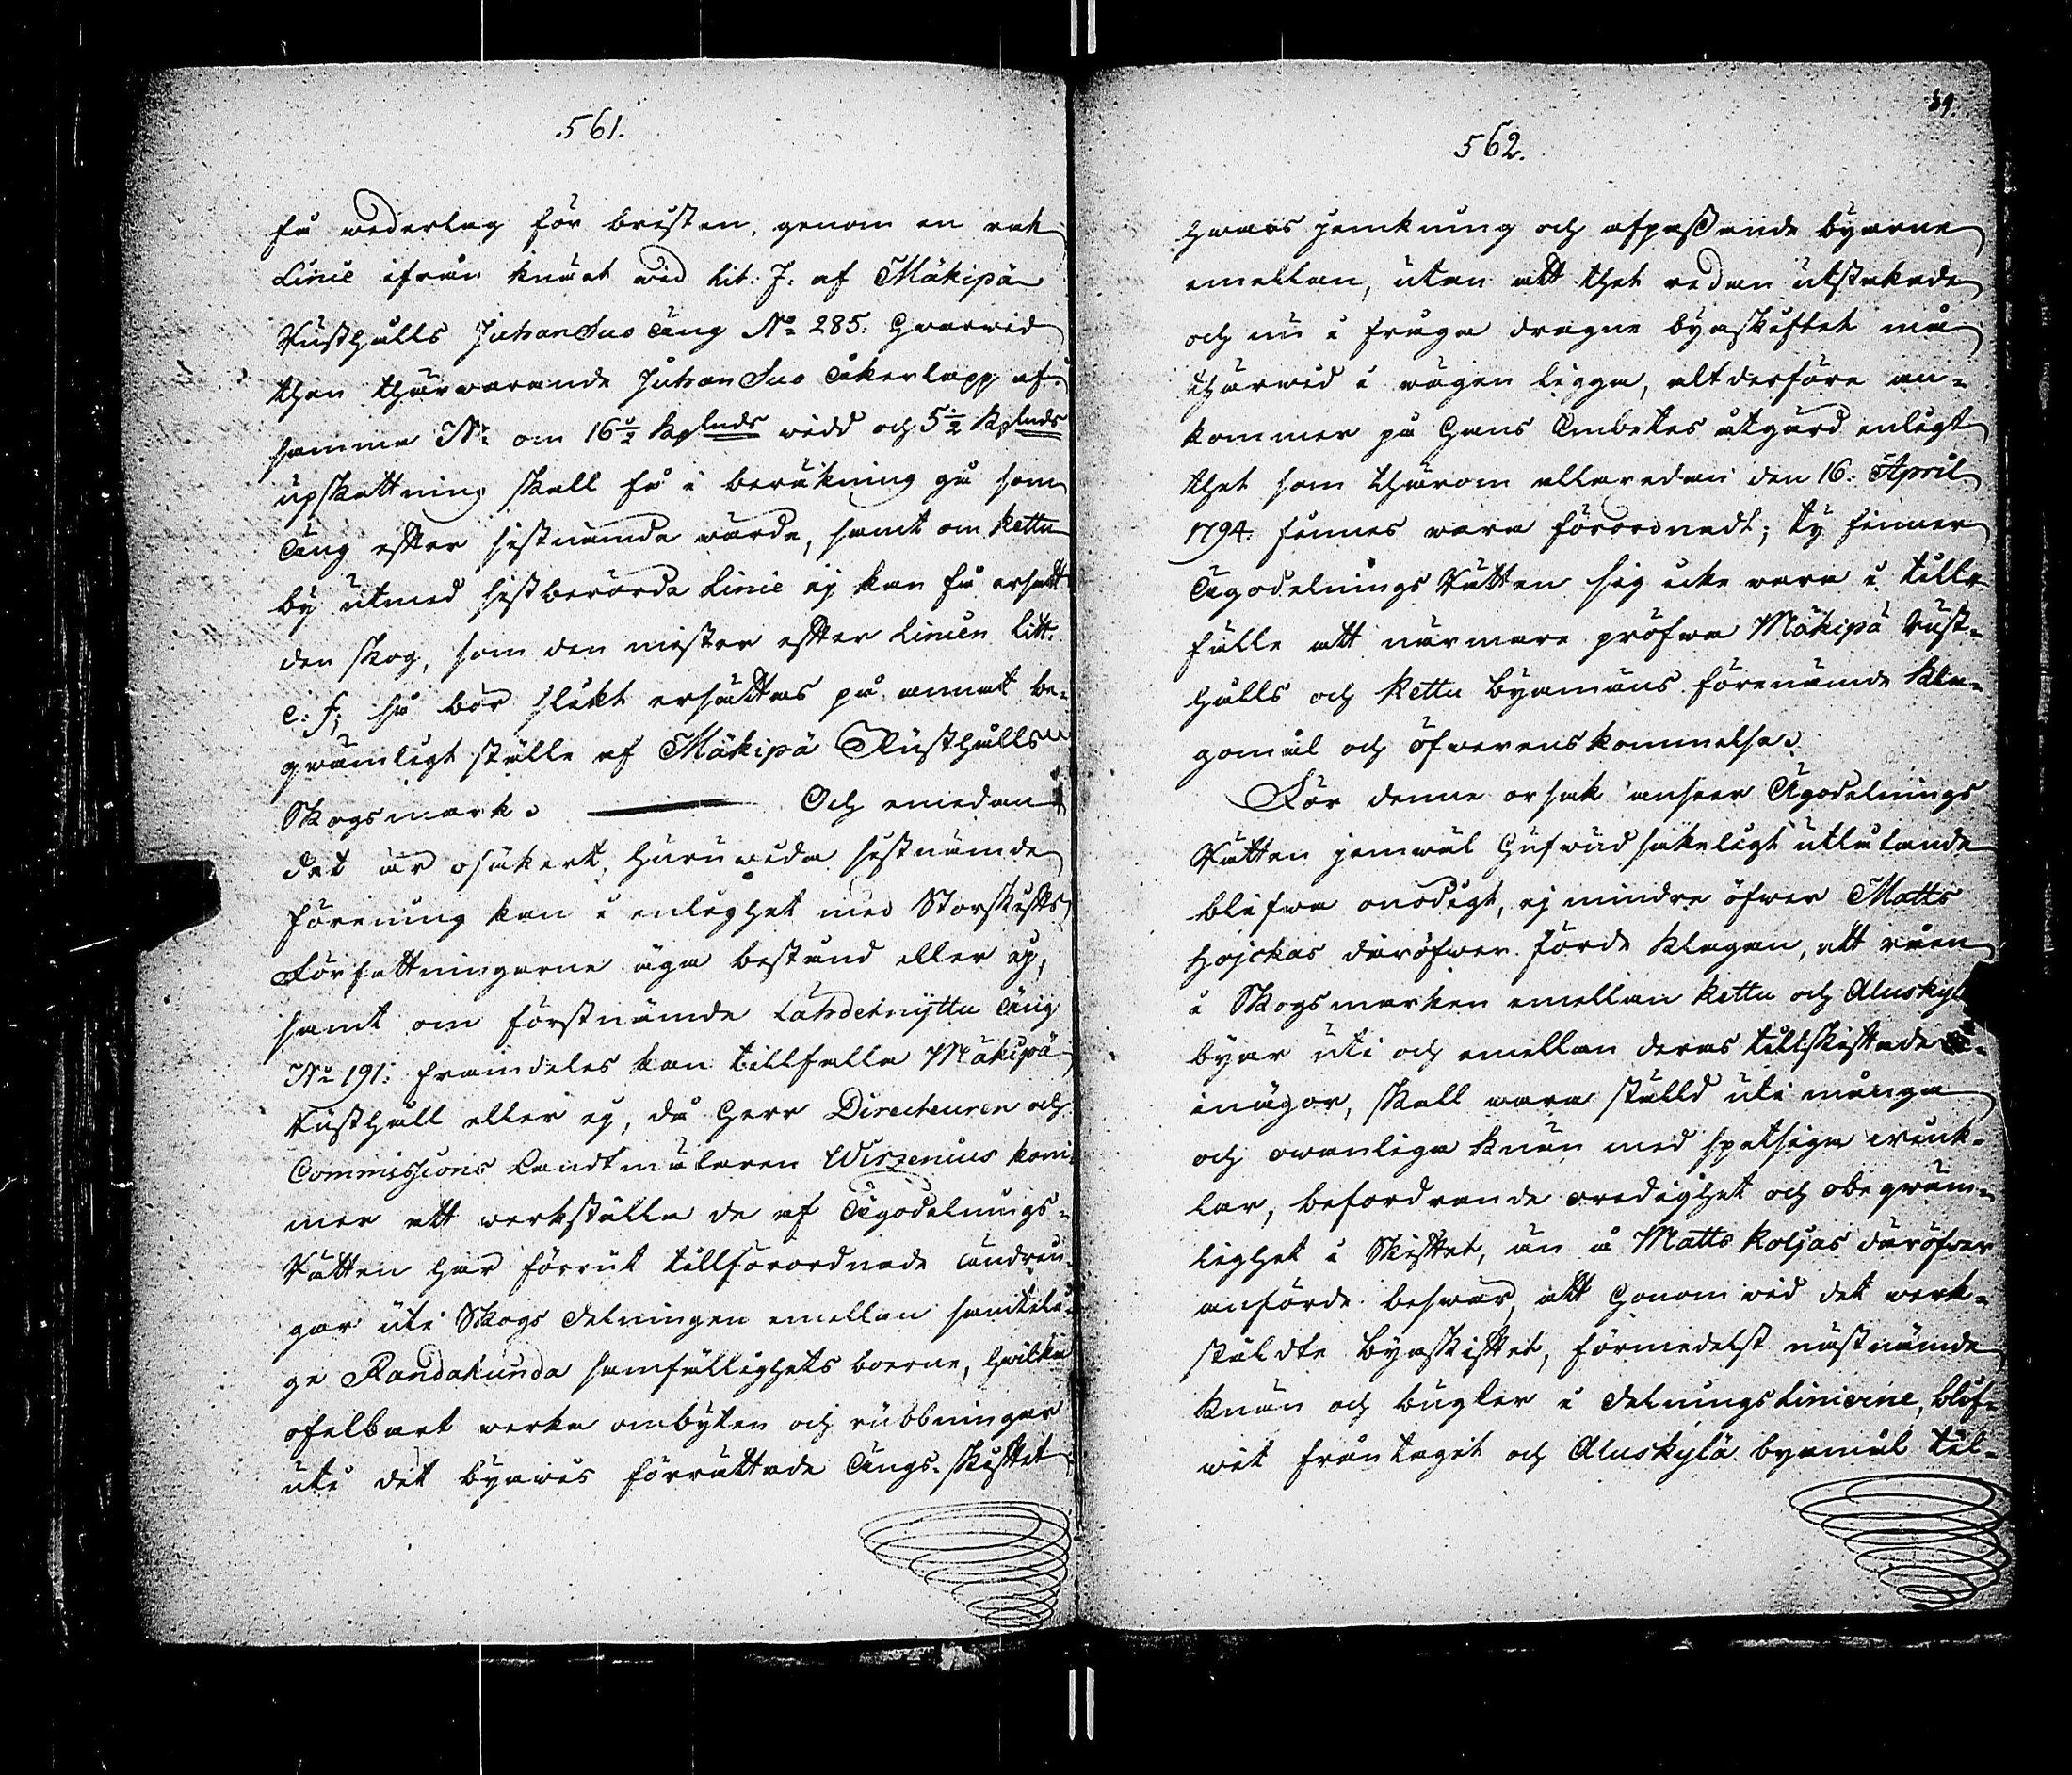 561.
få wederlag för bristen, genom en rak
Linie ifrån knäet wid Lit: J: af Mäkipä
Rusthålls Juhansuo äng No 285: hwarwid
then thärwarande Juhansuo åkerlapp af
samma No om 16 1/2 Kplands widd och 5 1/2 Kplands
upskattning skall få i beräkning gå som
äng efter sistnämde wärde, samt om Kettu
by utmed sistberörde Linie ej kan få ersatt
den skog, som den mister efter Linien Litt:
e: f; så bör slikt ersättas på annat be-
qwämligt ställe af Mäkipä Rusthålls
Skogsmark. Och emedan
det är osäkert, huruwida sistnämde
förening kan i enlighet med Storskiftes
Författningarne äga bestånd eller ej,
samt om förstnämde Lähdeknijttu äng
No 191: framdeles kan tillfalla Mäkipä
Rusthåll eller ej, då Herr Directeuren och
Commissions Landtmätaren Wirzenius kom-
mer att werkställa de af Ägodelnings-
Rätten här förrut tillförordnade ändrin-
gar uti Skogs delningen emellan samteli-
ge Randakunda samfällighets boerne, hwilka
ofelbart werka ombyten och rubbningar
uti det byawis förrättade Ängs-skiftet
39.
562.
hwars jemkning och afpassande byarne
emellan, utan att thet redan utstakade
och nu i fråga dragne byaskiftet må
thärwid i wägen ligga, alt derföre an-
kommer på Hans Embetes åtgärd enligt
thet som thärom allaredan den 16: April
1794. finnes wara förordnadt; ty finner
Ägodelnings Rätten sig icke wara i till-
fälle att närmare pröfwa Mäkipä Rust-
hålls och Kettu Byamäns förenämde Kla-
gomål och öfwerenskommelse.
För denne orsak anseer Ägodelnings
Rätten jemwäl hufwudsakeligt utlåtande
blifwa onödigt, ej mindre öfwer Matts
Hojckas däröfwer förde klagan, att råen
i Skogsmarken emellan Kettu och Aluskyl
byar uti och emellan deras tillskiftade
inägor, skall wara ställd uti många
och owanliga knän med spetsiga wink-
lar, befordrande oredighet och obeqwäm-
lighet i Skiftet, än å Matts Koljas däröfwer
anförde beswär, att honom wid det werk-
stäldte byaskiftet, förmedelst nästnämde
knän och bugter i delnings Linierne, blif-
wit fråntagit och Aluskylä byamål til-